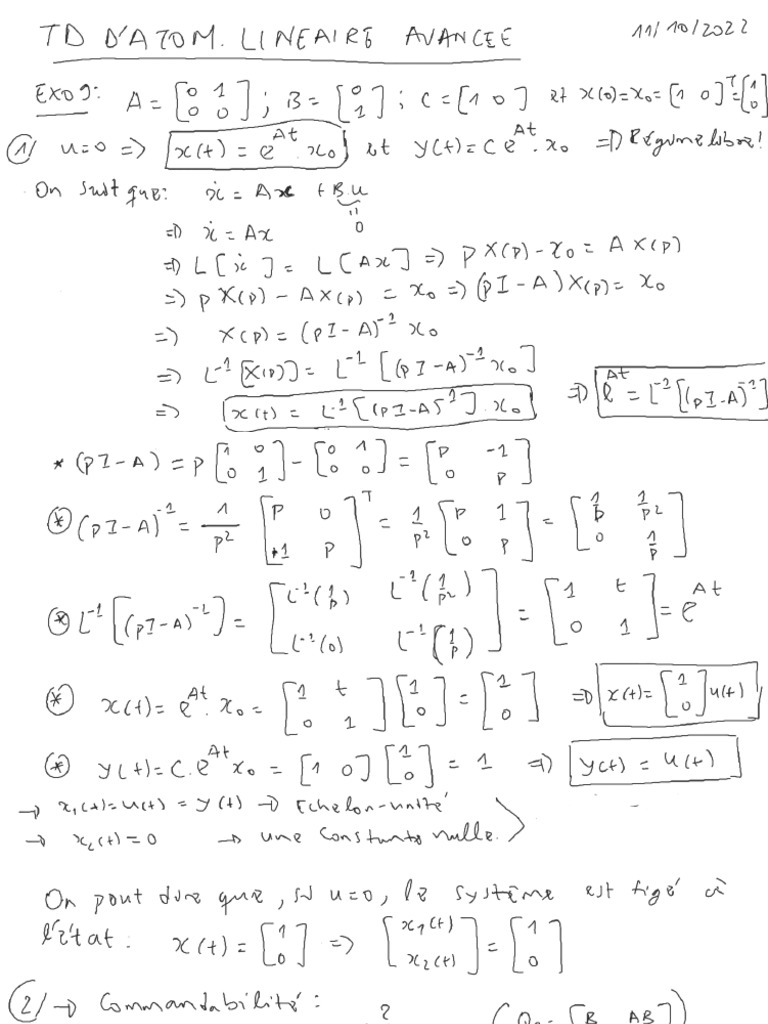 TD D'ATOM. LINEAIRE AVANCEE 11/10/2022
EXO9: A = [0 1; 0 0] ; B = [0; 1] ; C = [1 0] et x(0) = x₀ = [1 0]ᵀ = [1; 0]
1/ u=0 => x(t) = e^{At} . x₀ et y(t) = C e^{At} . x₀ => Régime libre!
On sait que: ẋ = Ax + Bu
0
=> ẋ = Ax
=> L[ẋ] = L[Ax] => pX(p) - x₀ = A X(p)
=> pX(p) - AX(p) = x₀ => (pI-A)X(p) = x₀
=> X(p) = (pI-A)⁻¹ x₀
=> L⁻¹[X(p)] = L⁻¹[(pI-A)⁻¹ x₀]
=> x(t) = L⁻¹[(pI-A)⁻¹] . x₀ => e^{At} = L⁻¹[(pI-A)⁻¹]
* (pI-A) = p[1 0; 0 1] - [0 1; 0 0] = [p -1; 0 p]
* (pI-A)⁻¹ = 1/p² [p 0; +1 p]ᵀ = 1/p² [p 1; 0 p] = [1/p 1/p²; 0 1/p]
* L⁻¹[(pI-A)⁻¹] = [L⁻¹(1/p) L⁻¹(1/p²); L⁻¹(0) L⁻¹(1/p)] = [1 t; 0 1] = e^{At}
* x(t) = e^{At} . x₀ = [1 t; 0 1][1; 0] = [1; 0] => x(t) = [1; 0] u(t)
* y(t) = C.e^{At} x₀ = [1 0][1; 0] = 1 => y(t) = u(t)
→ x₁(t) = u(t) = y(t) → Echelon-unité
→ x₂(t) = 0 → une constante nulle.
On peut dire que, si u=0, le système est figé à
l'état: x(t) = [1; 0] => [x₁(t); x₂(t)] = [1; 0]
2/ → Commandabilité: ? [B AB]